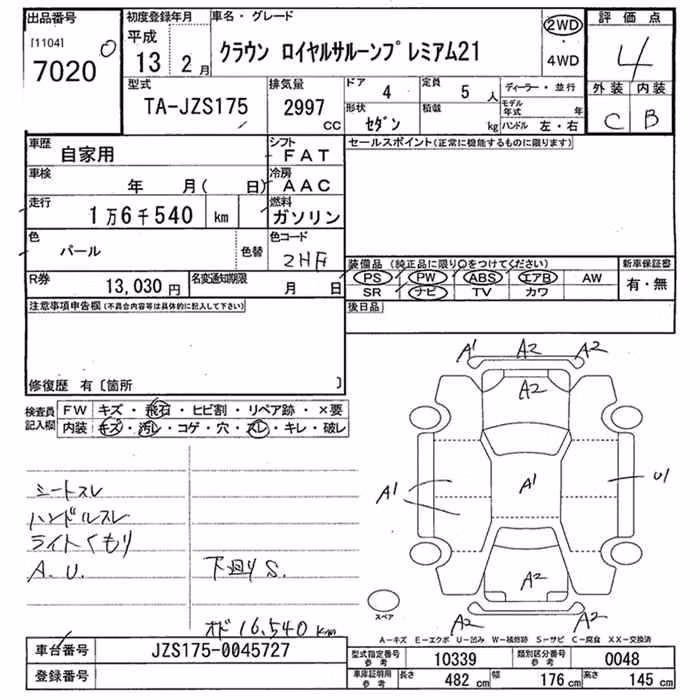 出品番号
[1104]
7020 0
初度登録年月
平成
13 2月
車名・グレード
クラウン ロイヤルサルーンプレミアム21
2WD
・
4WD
評価点
4
外装 内装
C B
型式
TA-JZS175
排気量
2997
CC
ドア
4
定員
5 人
形状
セダン
積載
kg
ディーラー・並行
モデル
年式 年
ハンドル 左・右
車歴
自家用
シフト
FAT
車検
年 月( 日)
冷房
AAC
走行
1万6千540 km
燃料
ガソリン
色
パール
色替
色コード
2HF
R券
13,030円
名変通知期限
月 日
セールスポイント(正常に機能するものに限ります)
装備品 (純正品に限り○をつけてください)
PS PW ABS エアB AW
SR ナビ TV カワ
新車保証書
有・無
後日品
注意事項申告欄(不具合内容等は具体的に記入して下さい)
修復歴 有〔箇所 〕
検査員
記入欄
FW キズ・飛石・ヒビ割・リペア跡・×要
内装 キズ・汚レ・コゲ・穴・スレ・キレ・破レ
シートスレ
ハンドルスレ
ライトくもり
A.U.
下廻りS.
オド 16,540 km
A1 A2 A2
A2
A1
A1
U1
A2
A2 A2
スペア
A-キズ E-エクボ U-凹み W-補修跡 S-サビ C-腐食 XX-交換済
車台番号 JZS175-0045727
登録番号
型式指定番号
参考
10339
類別区分番号
参考
0048
車庫証明用
参考
長さ 482 cm 幅 176 cm 高さ 145 cm